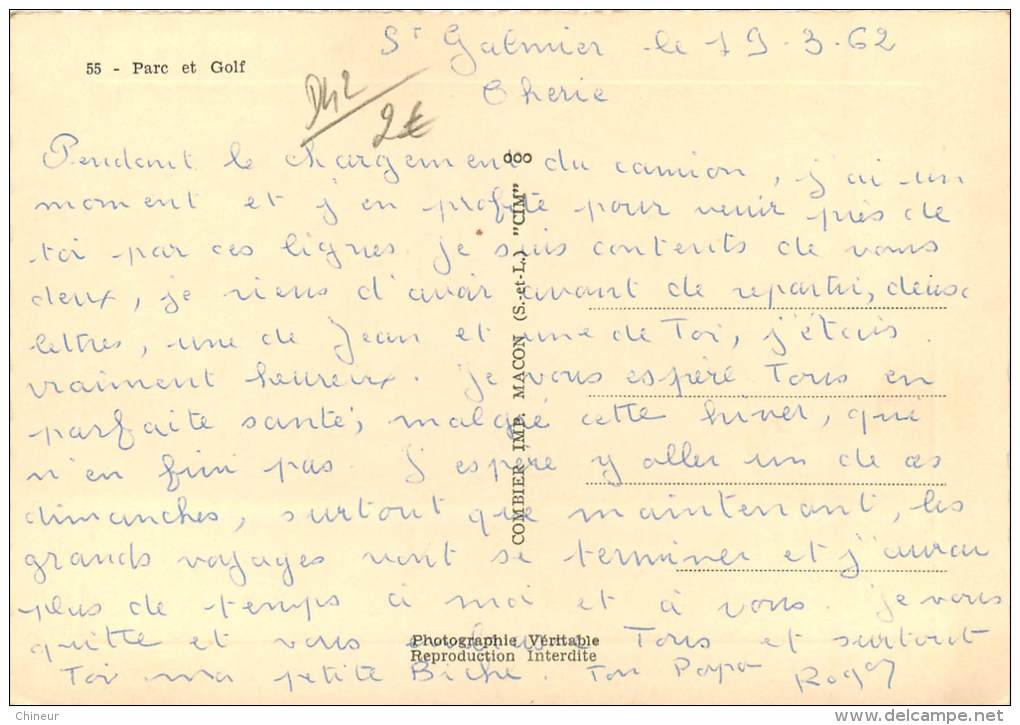 St Galmier le 19.3.62
55 - Parc et Golf
Cherie
DH2
2€
Pendant le chargement du camion, j'ai un
moment et j'en profite pour venir près de
toi par ces lignes. je suis contents de vous
deux, je viens d'avoir avant de repartir, deux
lettres, une de Jean et une de Toi, j'étais
vraiment heureux. Je vous espère Tous en
parfaite santé, malgré cette hiver, qui
n'en fini pas. J'espère y aller un de ces
dimanches, surtout que maintenant, les
grands voyages vont se terminer et j'aurai
plus de temps à moi et à vous. Je vous
quitte et vous embrasse Tous et surtout
Toi ma petite Biche. Ton Papa Roger
COMBIER IMP. MACON (S.-et-L.) "CIM"
Photographie Véritable
Reproduction Interdite
Chineur
www.delcampe.net